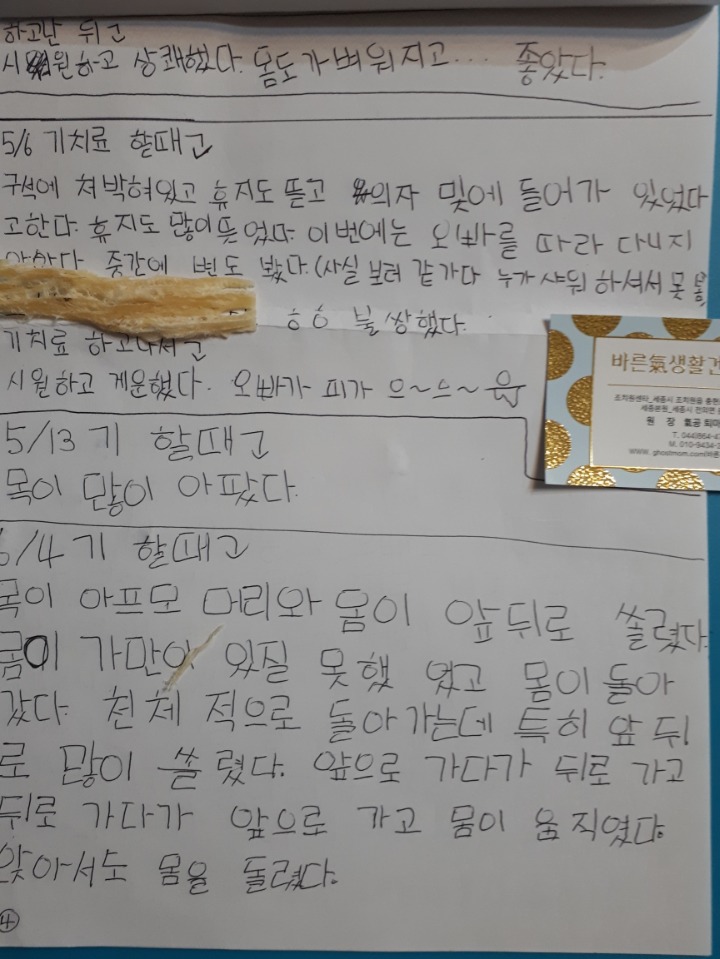 하고난 뒤고
시원하고 상쾌했다. 몸도가벼워지고... 좋았다.
5/6 기치료 할때고
구석에 쳐박혀있고 휴지도 뜯고 의자 밑에 들어가 있었다
고한다. 휴지도 많이뜻었다. 이번에는 오빠를 따라 다니지
중간에 변도 봤다.(사실 보려 갇가다 누가 샤워 하셔서 못 봄,
ㅎㅎ 불쌍했다.
기치료 하고나서고
시원하고 게운했다. 오빠가 피가 으~으~윽
5/13 기 할때고
목이 많이 아팠다.
6/4 기 할때고
목이 아프모 머리와 몸이 앞뒤로 쏠렸다.
몸이 가만이 있질 못했 였고 몸이 돌아
갔다. 천체 적으로 돌아가는데 특히 앞 뒤
로 많이 쏠렸다. 앞으로 가다가 뒤로 가고
뒤로 가다가 앞으로 가고 몸이 움직였다.
앉아서도 몸을 돌렸다.
④
바른氣생활건
조치원센타_세종시 조치원읍
세종본원_세종시 전의면
원 장 氣공
T. 044)864-4
M. 010-9434-3
www. ghostmom.com